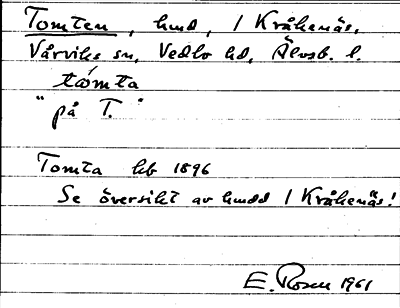 Tomten, hmd, 1 Kråkenäs,
Vårviks sn, Vedbo hd, Älvsb. l.
tómta
"på T."
Tomta hb 1896
Se översikt av hmdd 1 Kråkenäs!
E. Rosen 1961